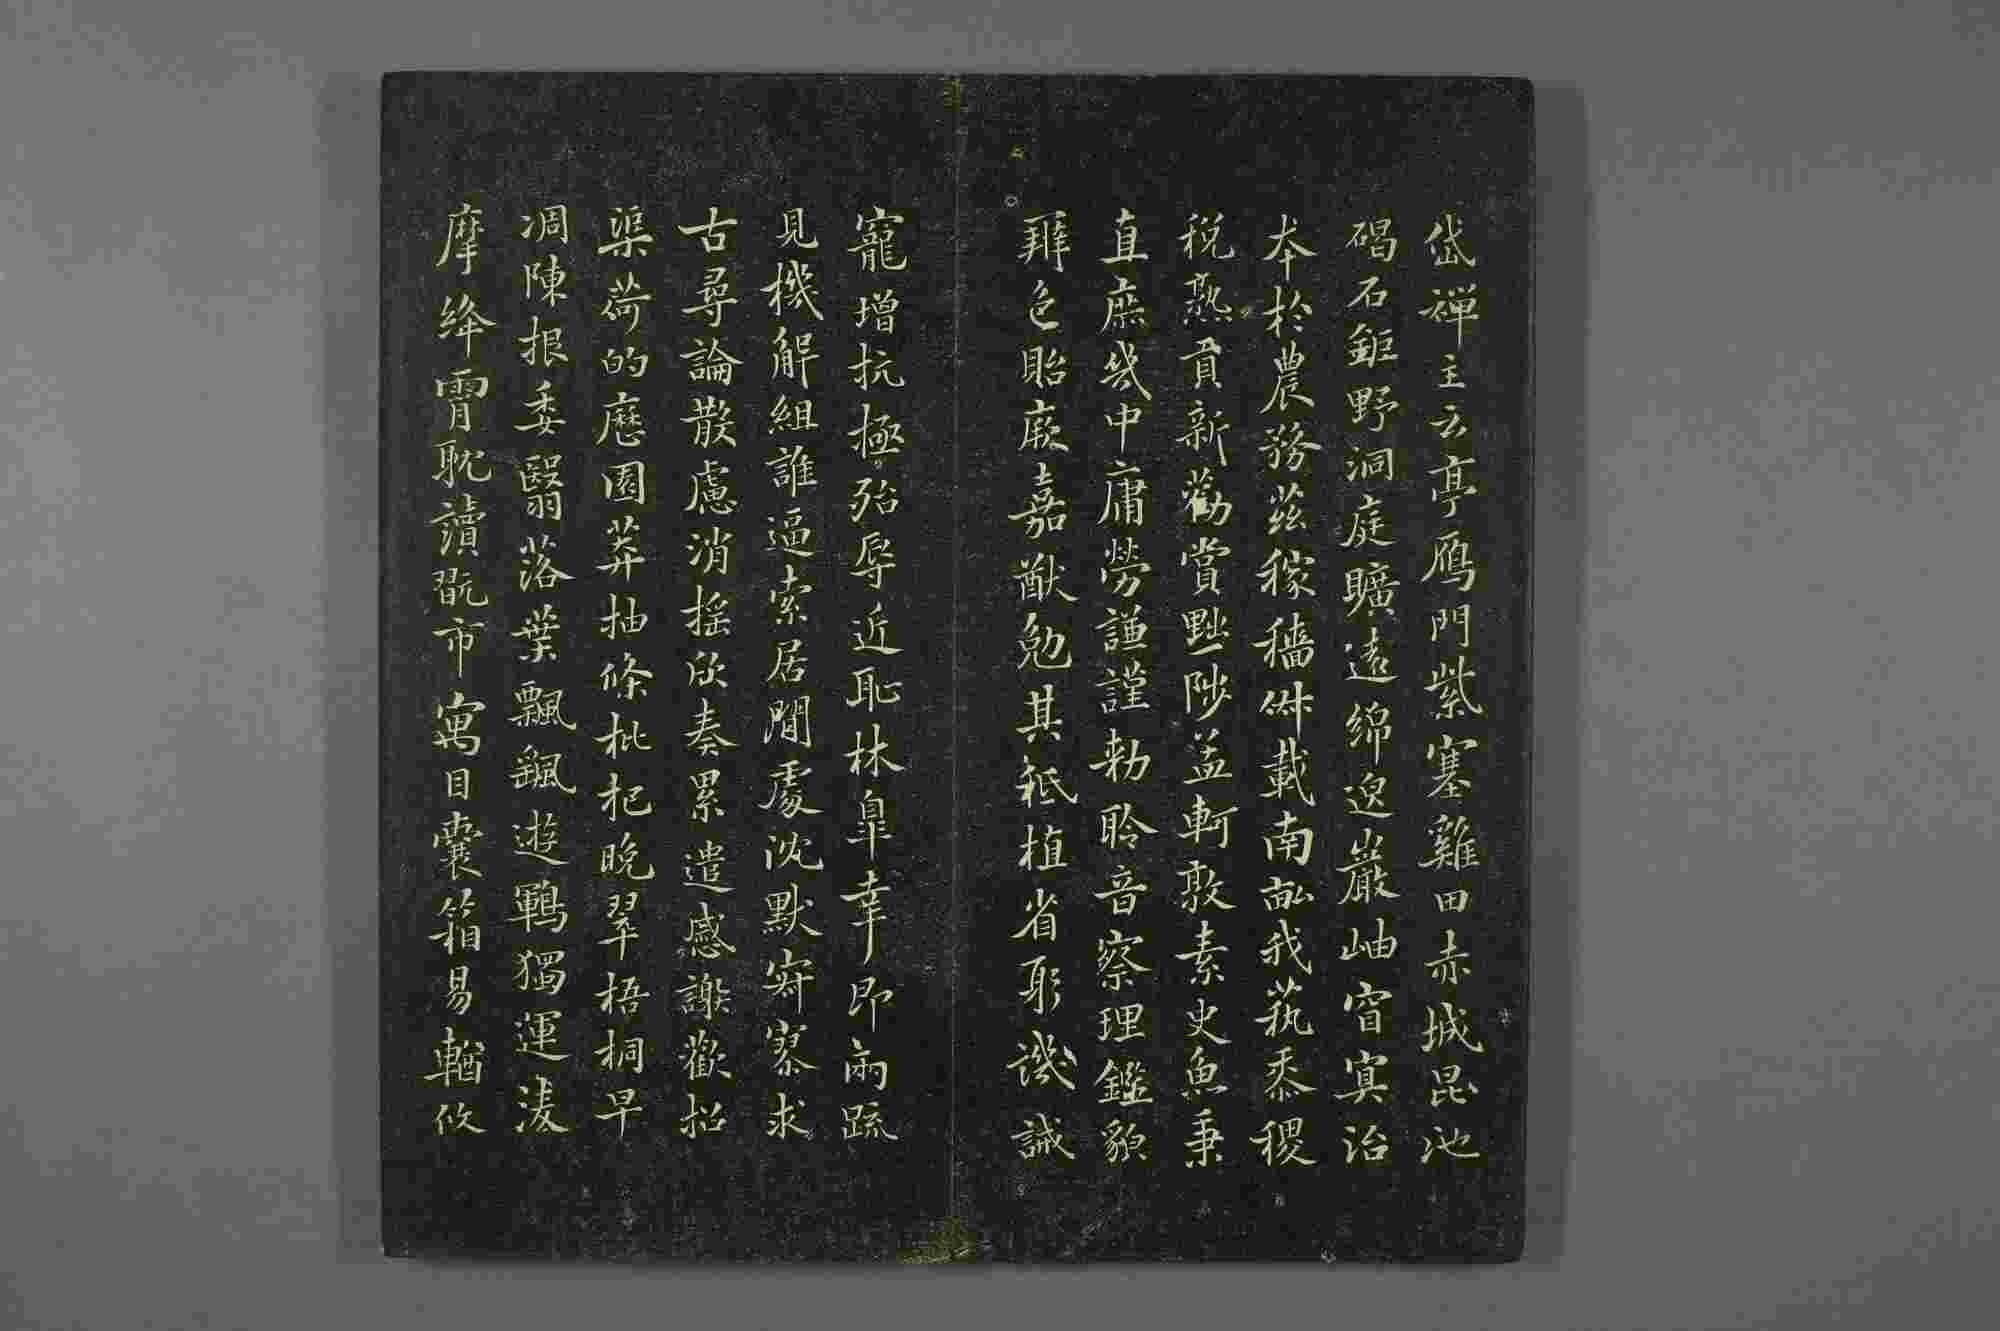 岱禅主云亭鴈門紫塞雞田赤城昆池
碣石鉅野洞庭曠遠綿邈巖岫窅冥治
本於農務兹稼穡俶載南畝我蓺黍稷
税熟貢新勸賞黜陟孟軻敦素史魚秉
直庶幾中庸勞謙謹勅聆音察理鑑貌
辨色貽厥嘉猷勉其祗植省躬譏誡
寵增抗極殆辱近恥林皐幸即兩疏
見機解組誰逼索居閒處沈默寂寥求
古尋論散慮逍摇欣奏累遣慼謝歡招
渠荷的歷園莽抽條枇杷晚翠梧桐早
凋陳根委翳落葉飄颻遊鵾獨運凌
摩絳霄耽讀翫市寓目囊箱易輶攸